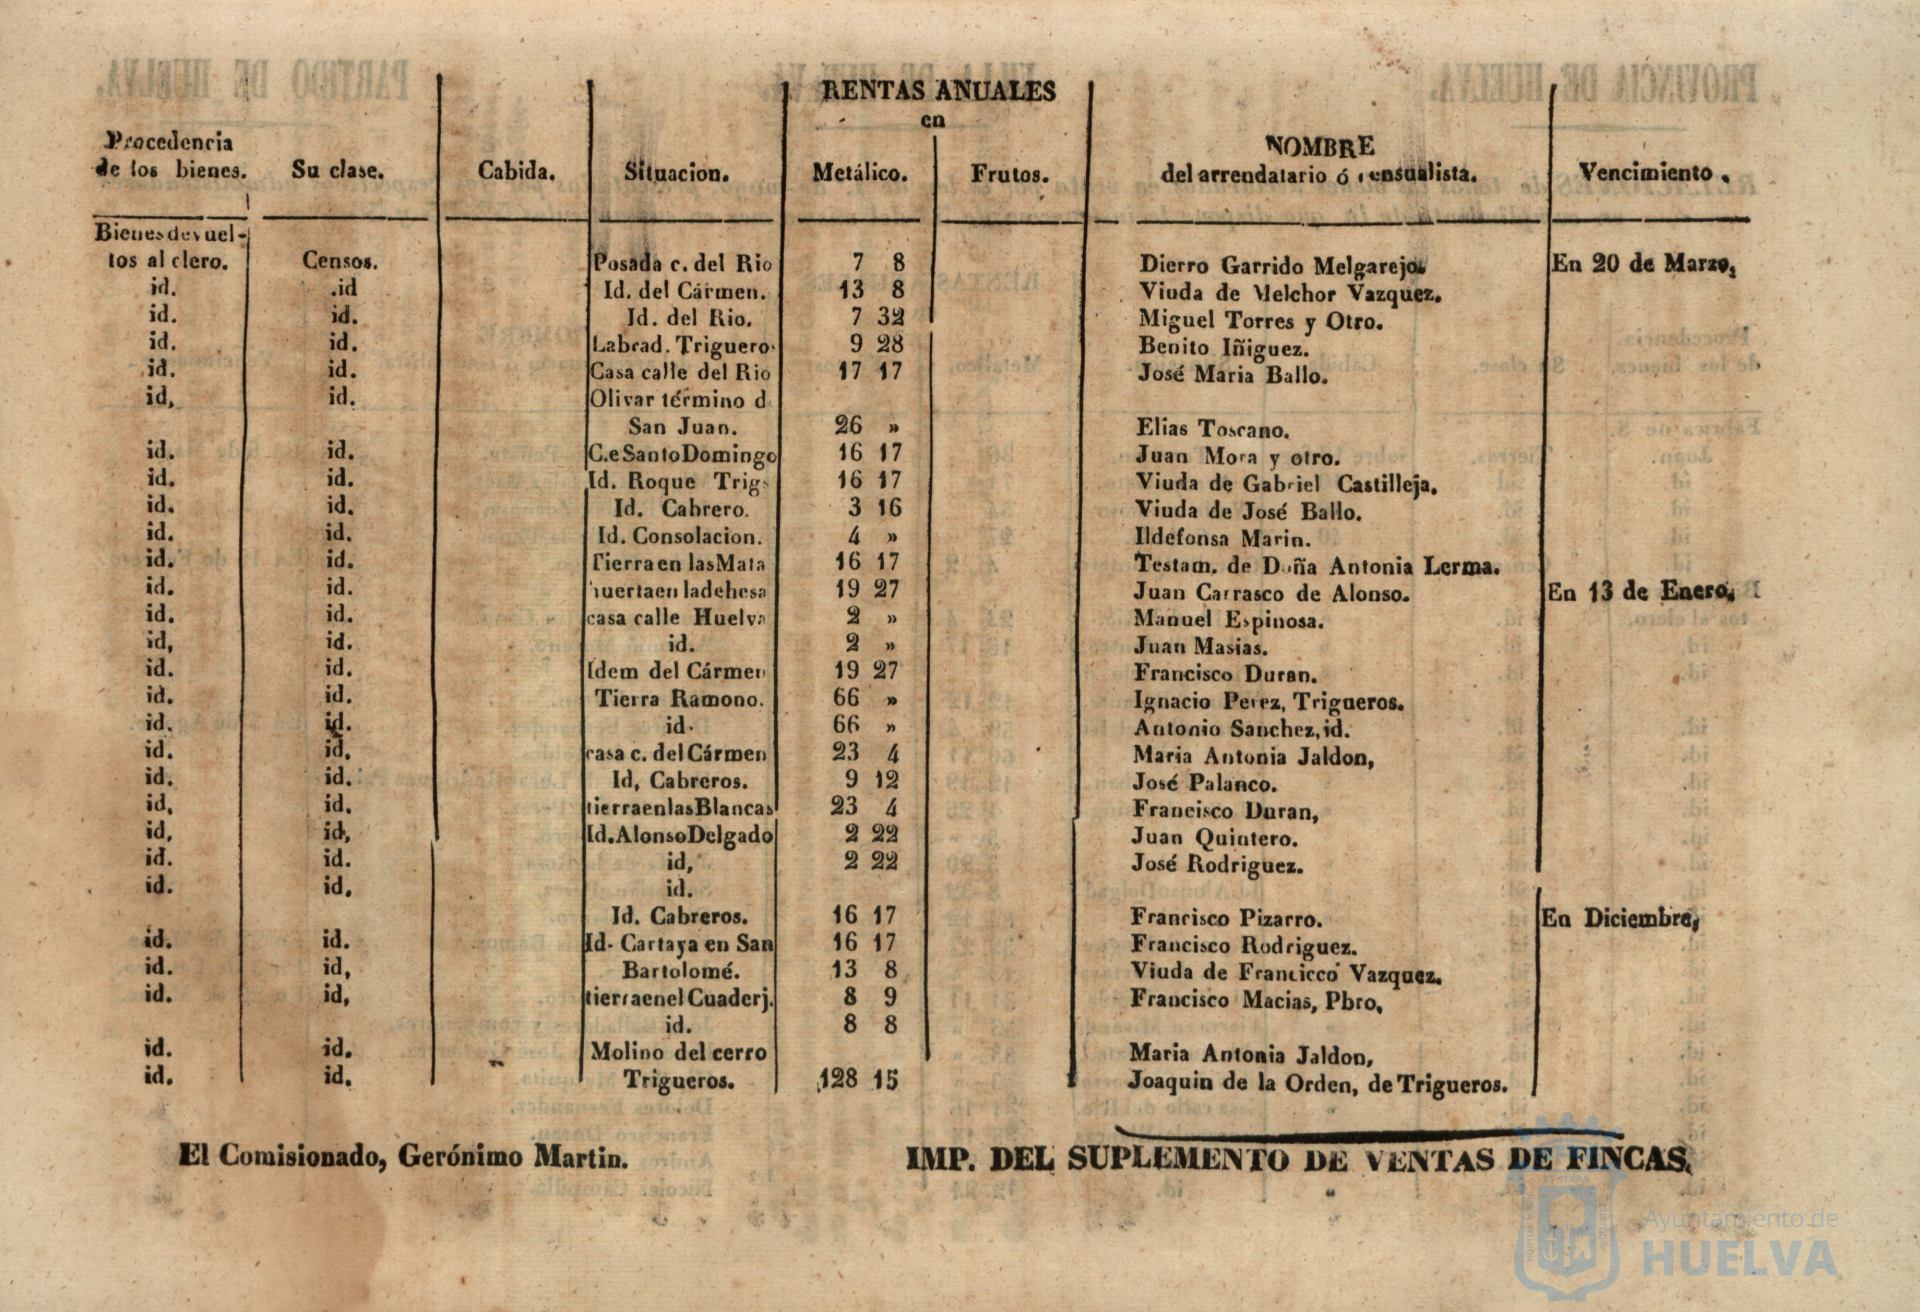 RENTAS ANUALES
en
Procedencia de los bienes. Su clase. Cabida. Situacion. Metálico. Frutos. NOMBRE del arrendatario ó censualista. Vencimiento.
Bienes devuel-
tos al clero. Censos. Posada c. del Rio 7 8 Dierro Garrido Melgarejo. En 20 de Marzo,
id. .id Id. del Cármen. 13 8 Viuda de Melchor Vazquez.
id. id. Id. del Rio. 7 32 Miguel Torres y Otro.
id. id. Labrad. Triguero 9 28 Benito Iñiguez.
id. id. Casa calle del Rio 17 17 José Maria Ballo.
id, id. Olivar término d
San Juan. 26 » Elias Toscano.
id. id. C.e Santo Domingo 16 17 Juan Mora y otro.
id. id. Id. Roque Trig 16 17 Viuda de Gabriel Castilleja.
id. id. Id. Cabrero. 3 16 Viuda de José Ballo.
id. id. Id. Consolacion. 4 » Ildefonsa Marin.
id. id. Tierra en las Mata 16 17 Testam. de Doña Antonia Lerma.
id. id. huerta en la dehesa 19 27 Juan Carrasco de Alonso. En 13 de Enero,
id. id. casa calle Huelva 2 » Manuel Espinosa.
id, id. id. 2 » Juan Masias.
id. id. Idem del Cármen 19 27 Francisco Duran.
id. id. Tierra Ramono. 66 » Ignacio Perez, Trigueros.
id. id. id. 66 » Antonio Sanchez, id.
id. id, casa c. del Cármen 23 4 Maria Antonia Jaldon,
id. id. Id, Cabreros. 9 12 José Palanco.
id, id. tierra en las Blancas 23 4 Francisco Duran,
id, id, Id. Alonso Delgado 2 22 Juan Quintero.
id. id. id, 2 22 José Rodriguez.
id. id, id.
Id. Cabreros. 16 17 Francisco Pizarro. En Diciembre,
id. id. Id. Cartaya en San 16 17 Francisco Rodriguez.
id. id, Bartolomé. 13 8 Viuda de Francicco Vazquez.
id. id, tierra en el Cuaderj. 8 9 Francisco Macias, Pbro,
id. 8 8
id. id. Molino del cerro Maria Antonia Jaldon,
id. id. Trigueros. 128 15 Joaquin de la Orden, de Trigueros.
El Comisionado, Gerónimo Martin. IMP. DEL SUPLEMENTO DE VENTAS DE FINCAS.
Ayuntamiento de
HUELVA